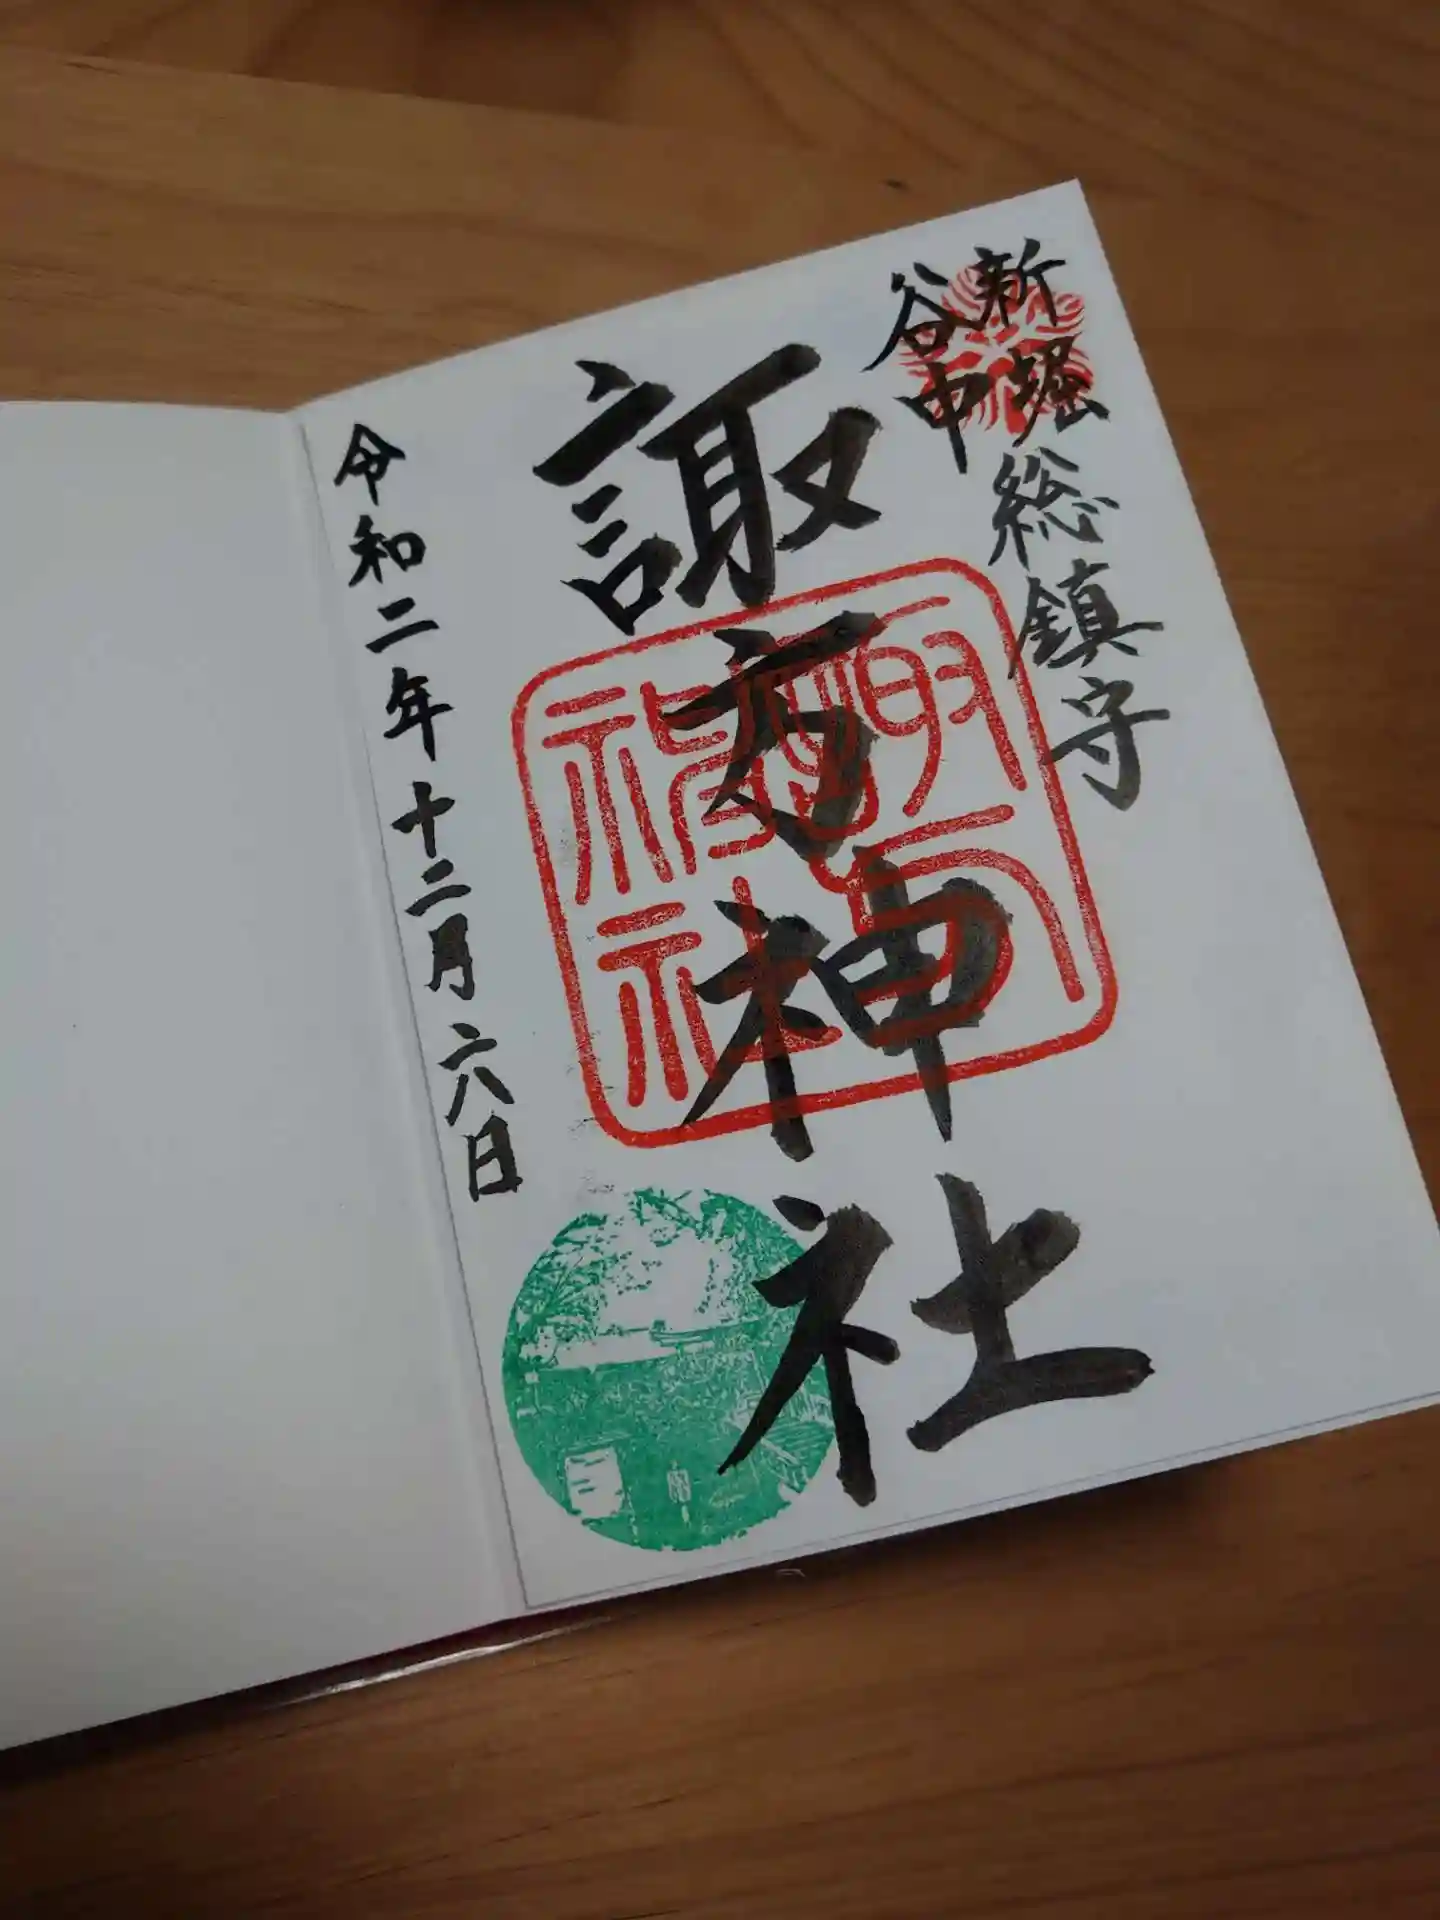 新堀
谷中
総鎮守
諏方神社
令和二年十二月六日